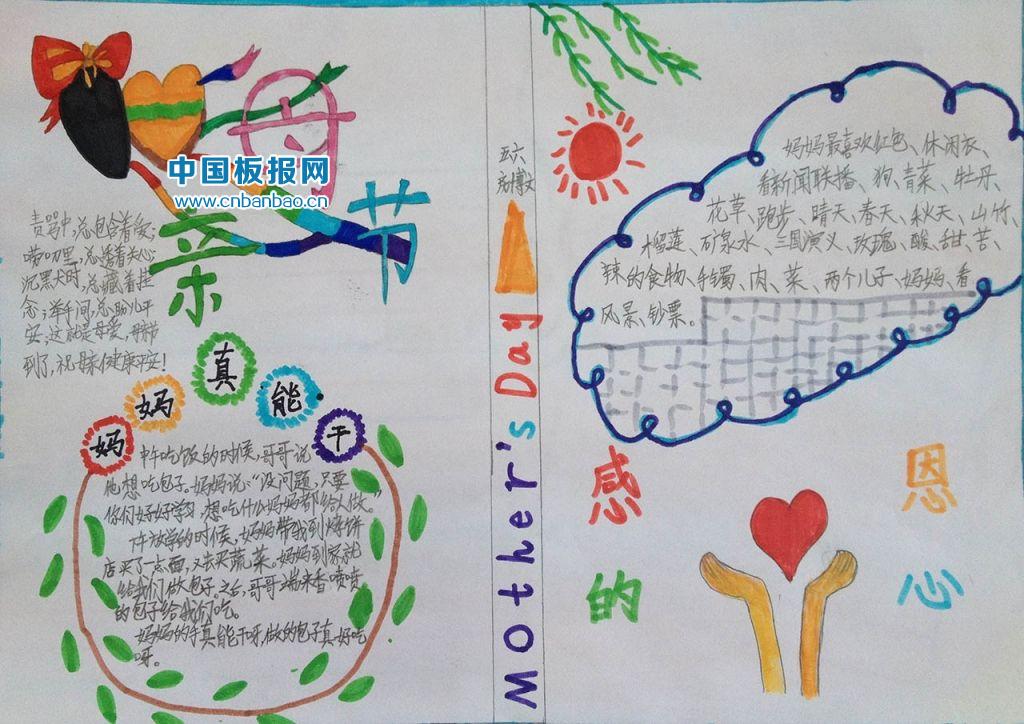 母
亲
节
中国板报网
www.cnbanbao.cn
责骂中,总包含着爱;
唠叨里,总透着关心;
沉黑犬时,总藏着挂
念;举年间,总盼儿平
安;这就是母爱,母亲节
到了,祝妈妈健康平安!
妈妈真能干
中午吃饭的时候,哥哥说
他想吃包子。妈妈说:“没问题,只要
你们好好学习,想吃什么妈妈都给认做。”
下午放学的时候,妈妈带我到烧饼
店买了一点面,又去买蔬菜。妈妈到家就
给我们做包子,之后,哥哥端来香喷喷
的包子给我们吃。
妈妈的手真能干呀,做的包子真好吃
呀。
五六
Mother's Day
妈妈最喜欢红包、休闲衣、
看新闻联播、狗、青菜、牡丹、
花草、跑步、晴天、春天、秋天、山竹、
榴莲、矿泉水、三国演义、玫瑰、酸、甜、苦、
辣的食物、手镯、肉、菜、两个儿子、妈妈、看
风景、钞票。
感恩
的心